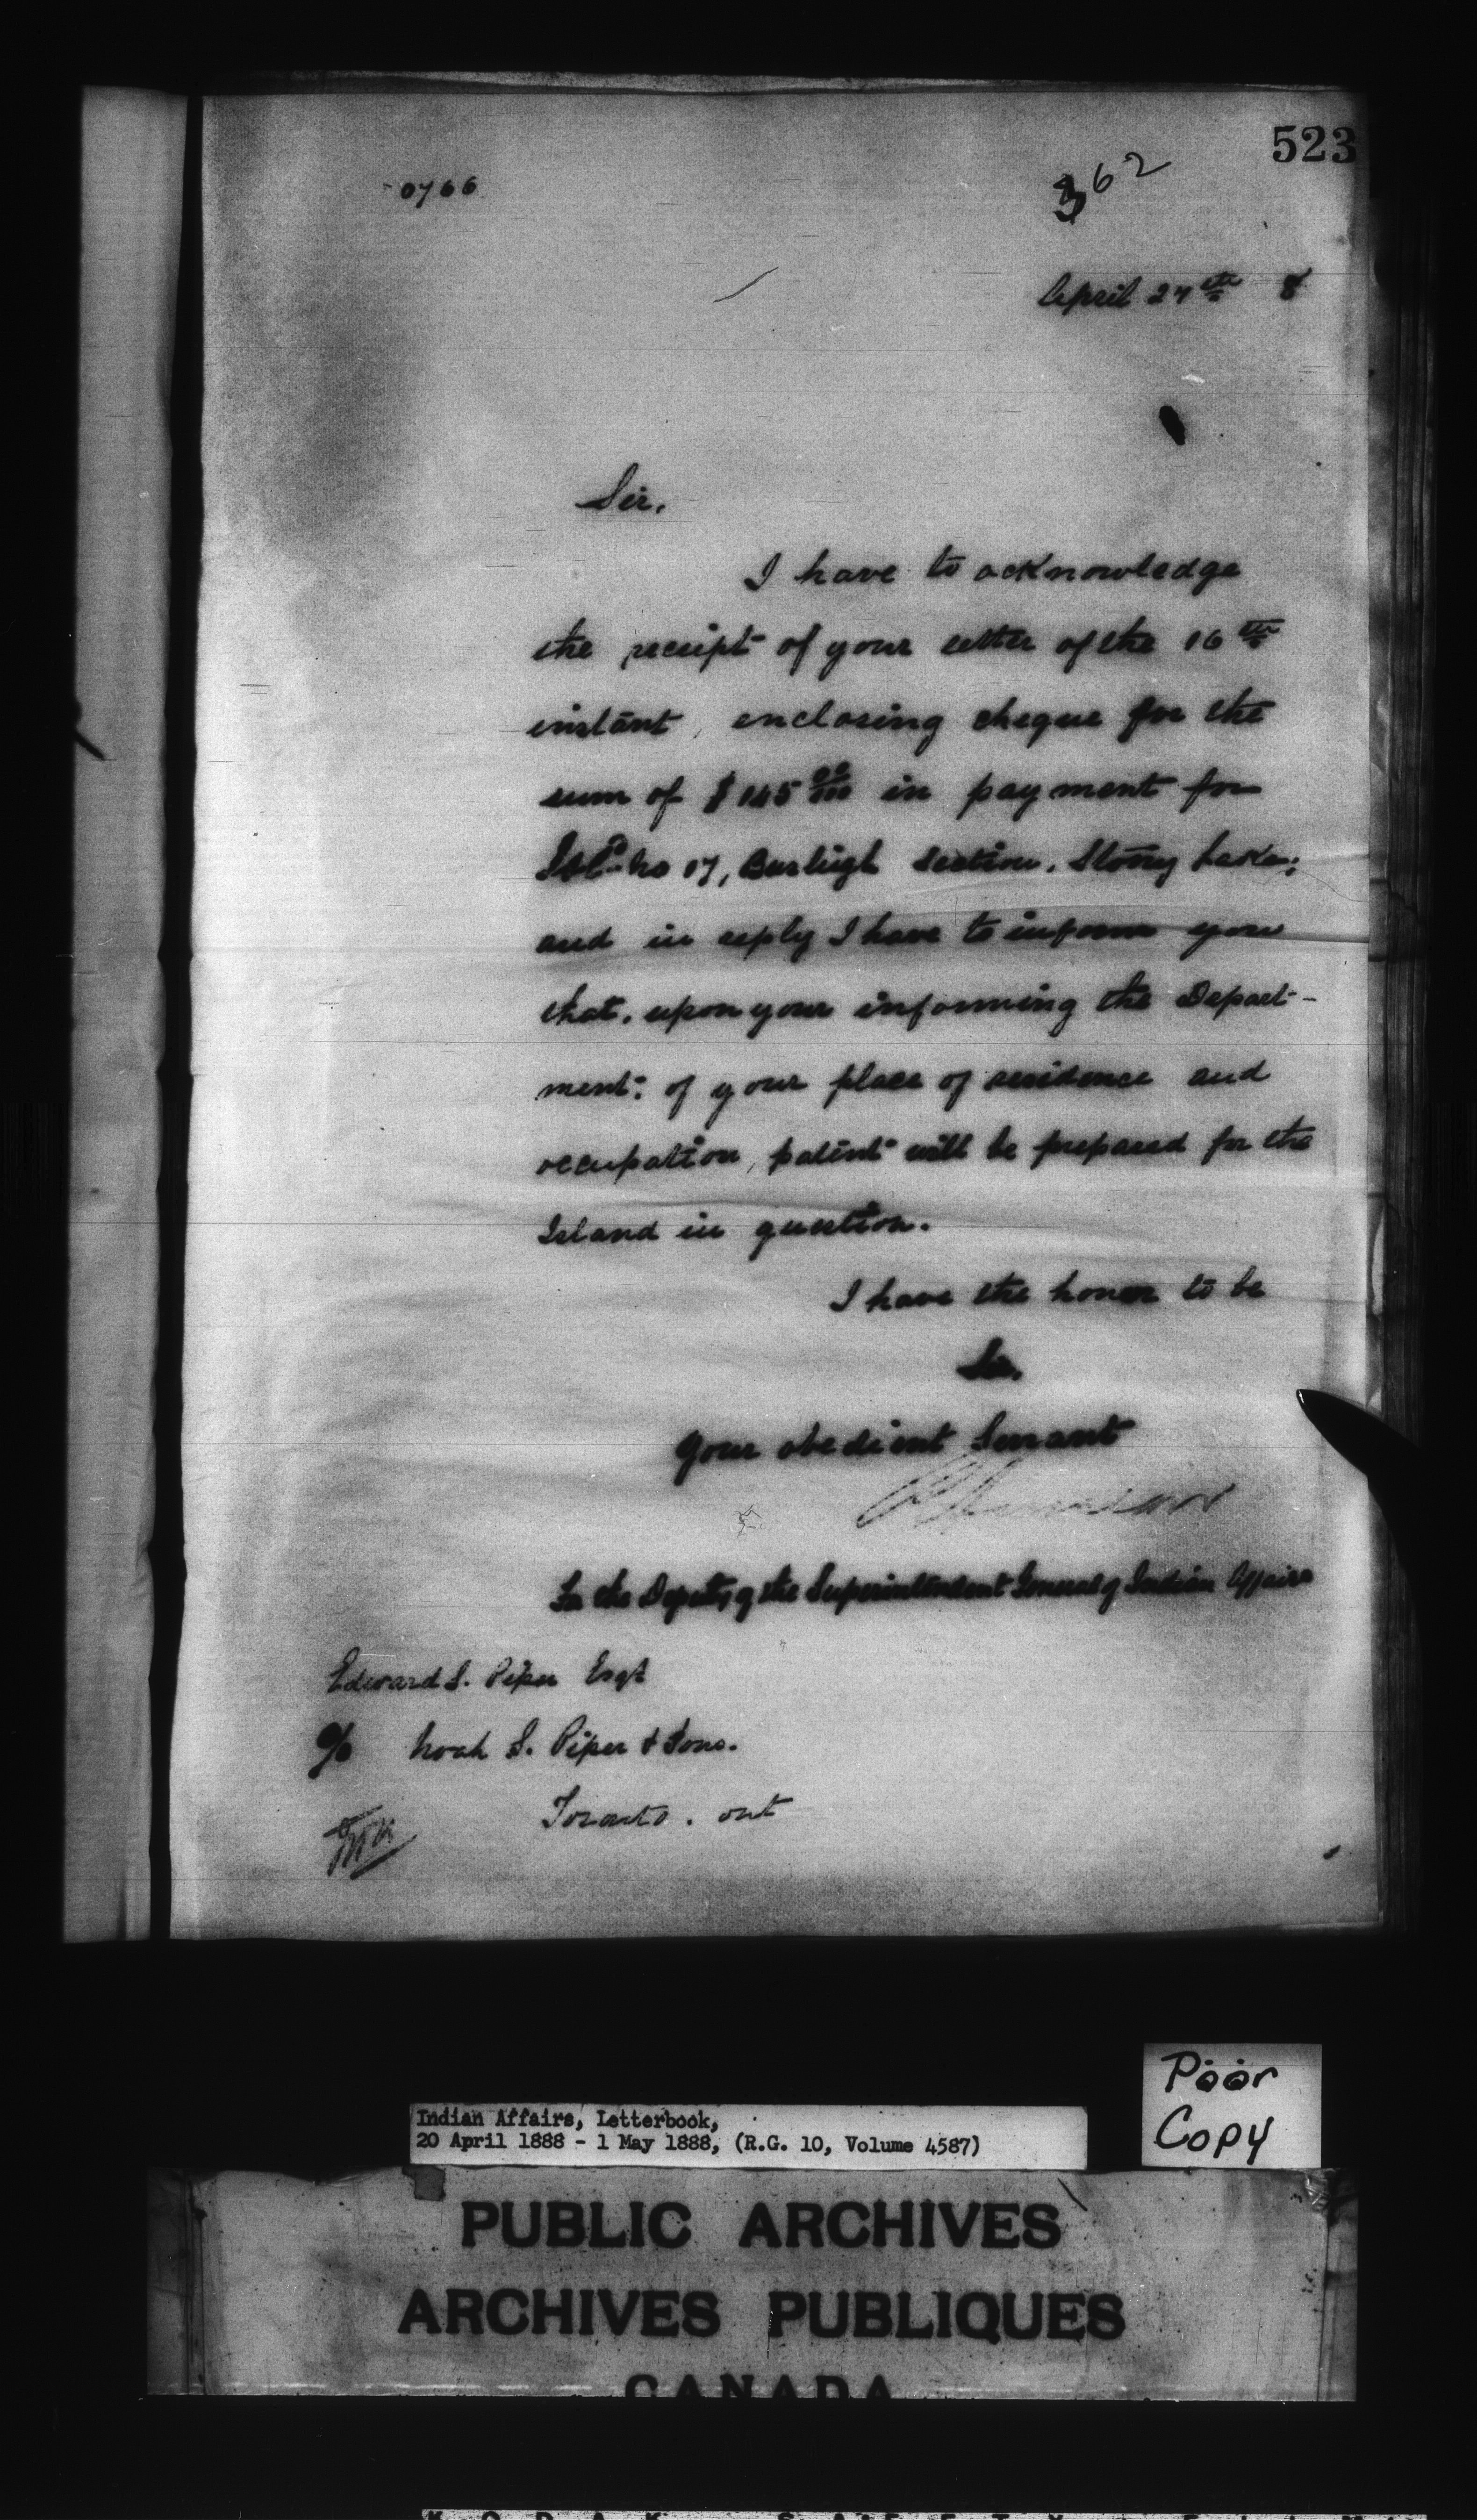 523
362
0766
April 27th 8
Sir,
I have to acknowledge
the receipt of your letter of the 16th
instant, enclosing cheque for the
sum of $ 00/100 in payment for
Isld no 17, Burleigh section, Stony Lake;
and in reply I have to inform you
that, upon your informing the Depart-
ment of your place of residence and
occupation, patent will be prepared for the
Island in question.
I have the honor to be
Sir,
Your obedient Servant
For the Deputy of the Superintendent General of Indian Affairs
Edward S. Piper Esqr
c/o Noah S. Piper & Sons.
Toronto. Ont
Poor
Copy
Indian Affairs, Letterbook,
20 April 1888 - 1 May 1888, (R.G. 10, Volume 4587)
PUBLIC ARCHIVES
ARCHIVES PUBLIQUES
CANADA